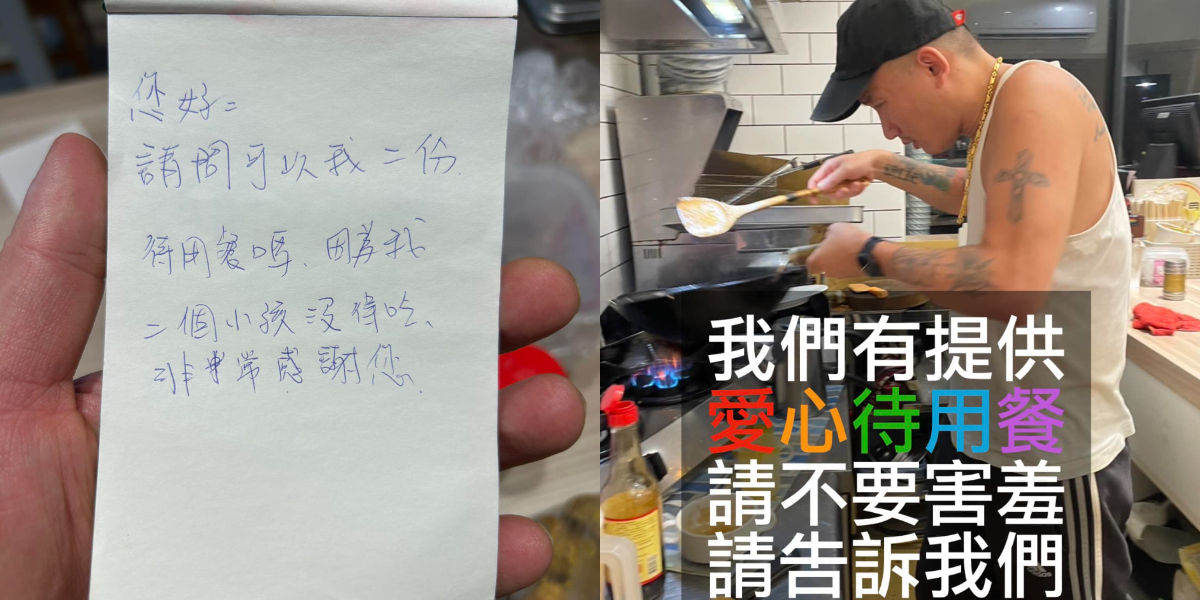 您好=
請問可以我二份.
待用餐嗎、因為我
二個小孩沒得吃、
非常感謝您.
我們有提供
愛心待用餐
請不要害羞
請告訴我們